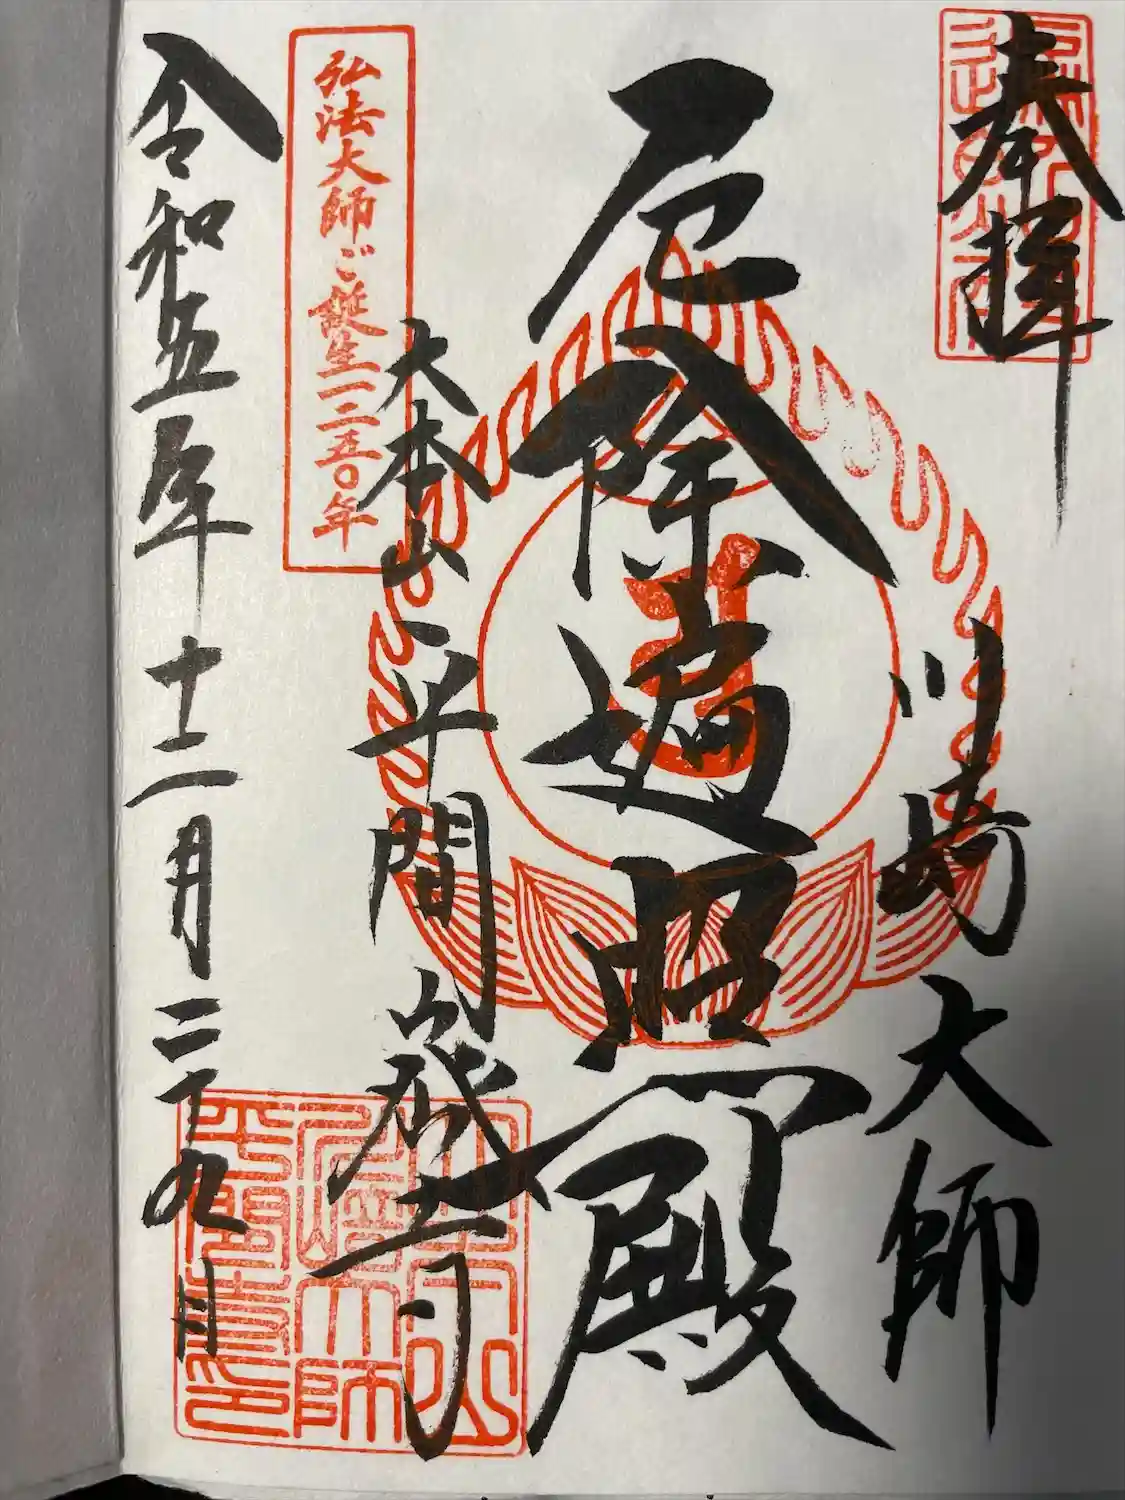 奉拝
川崎大師
厄除遍照殿
大本山平間寺
弘法大師ご誕生一二五〇年
令和五年十二月二十九日